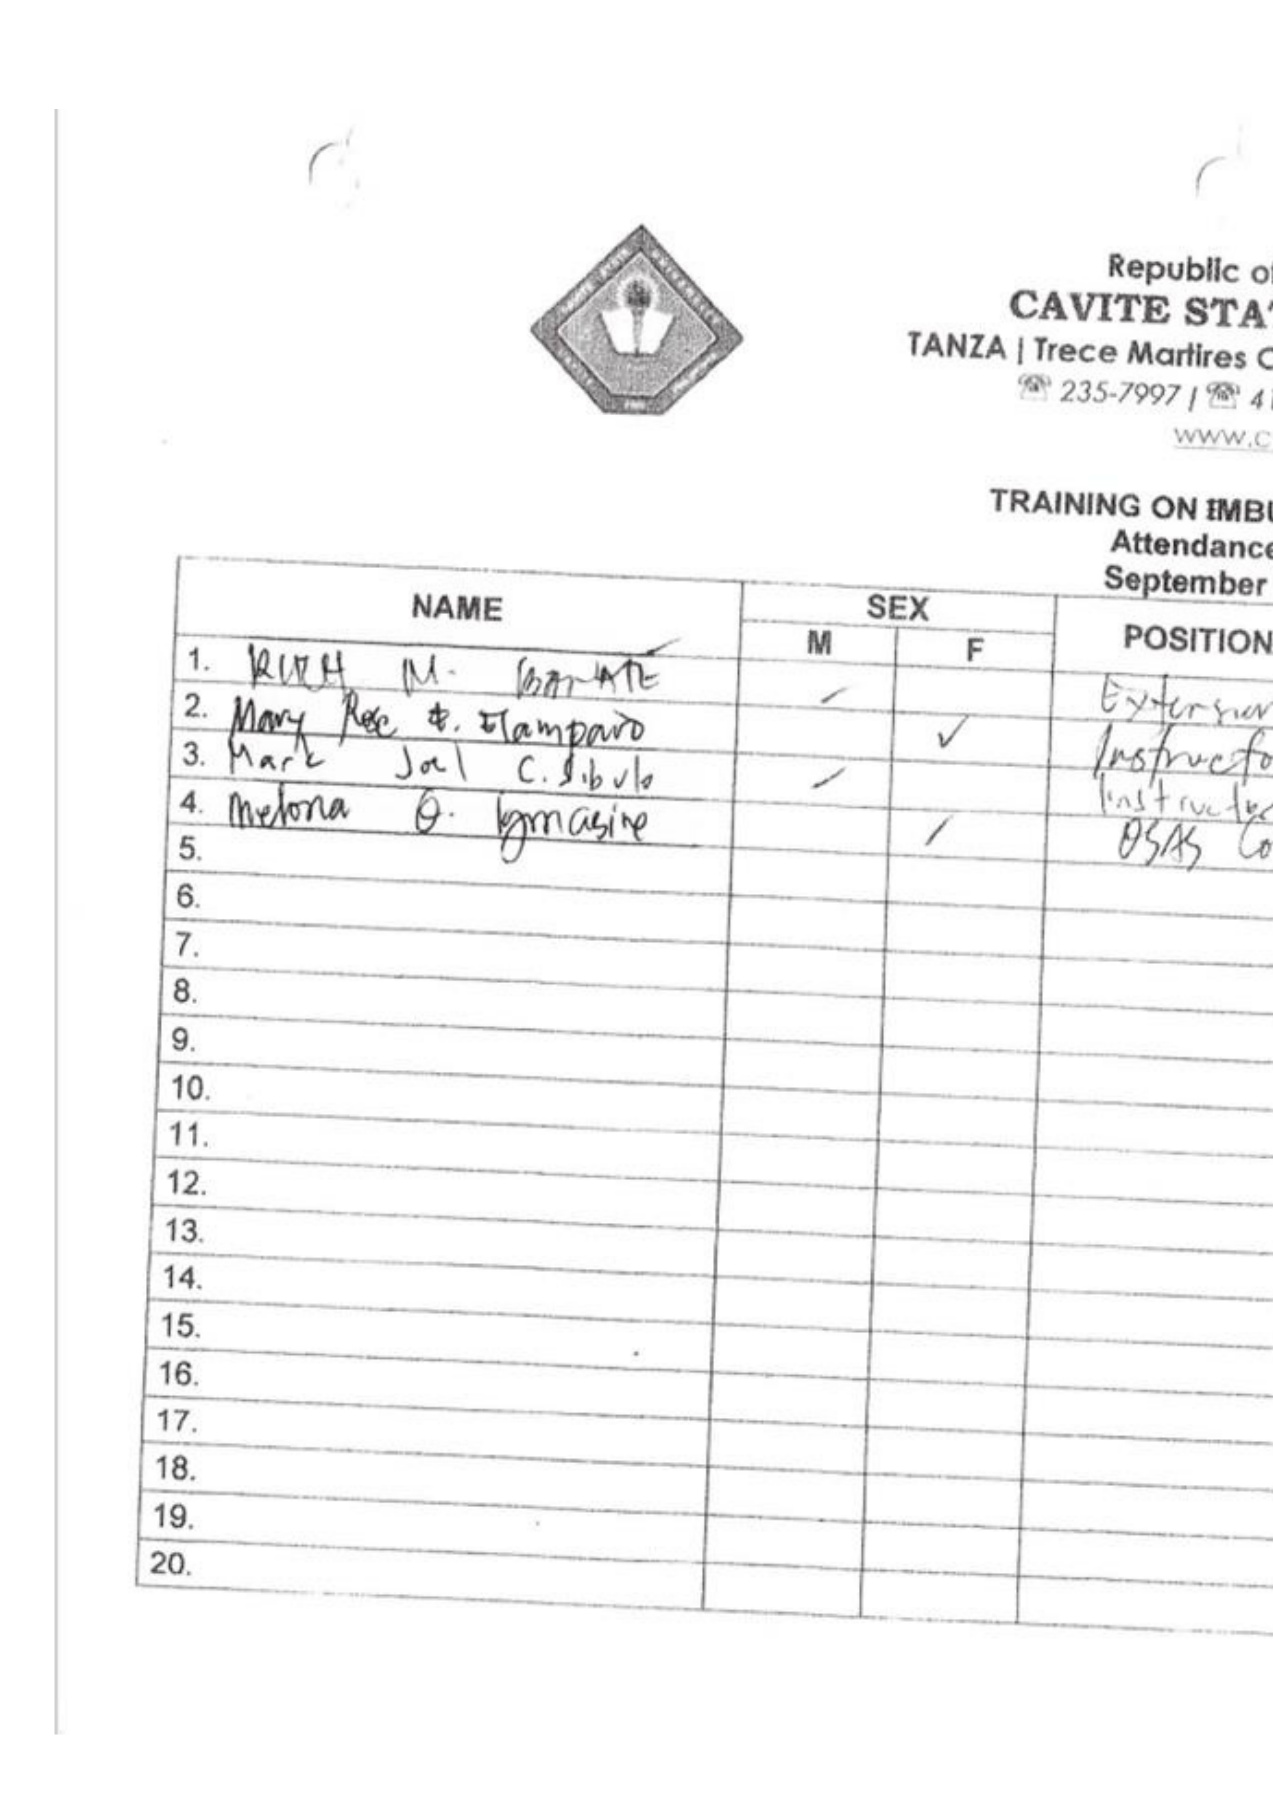 Republic of
CAVITE STA
TANZA | Trece Martires C
235-7997 | 41
www.c
TRAINING ON EMBU
Attendance
September
NAME SEX POSITION
M F
1. M.
2. Mary Rose Elamparo Instructo
3. Mark Joel C. Sibulo Instructo
4. Melona O. Igmasine OSAS Co
5.
6.
7.
8.
9.
10.
11.
12.
13.
14.
15.
16.
17.
18.
19.
20.